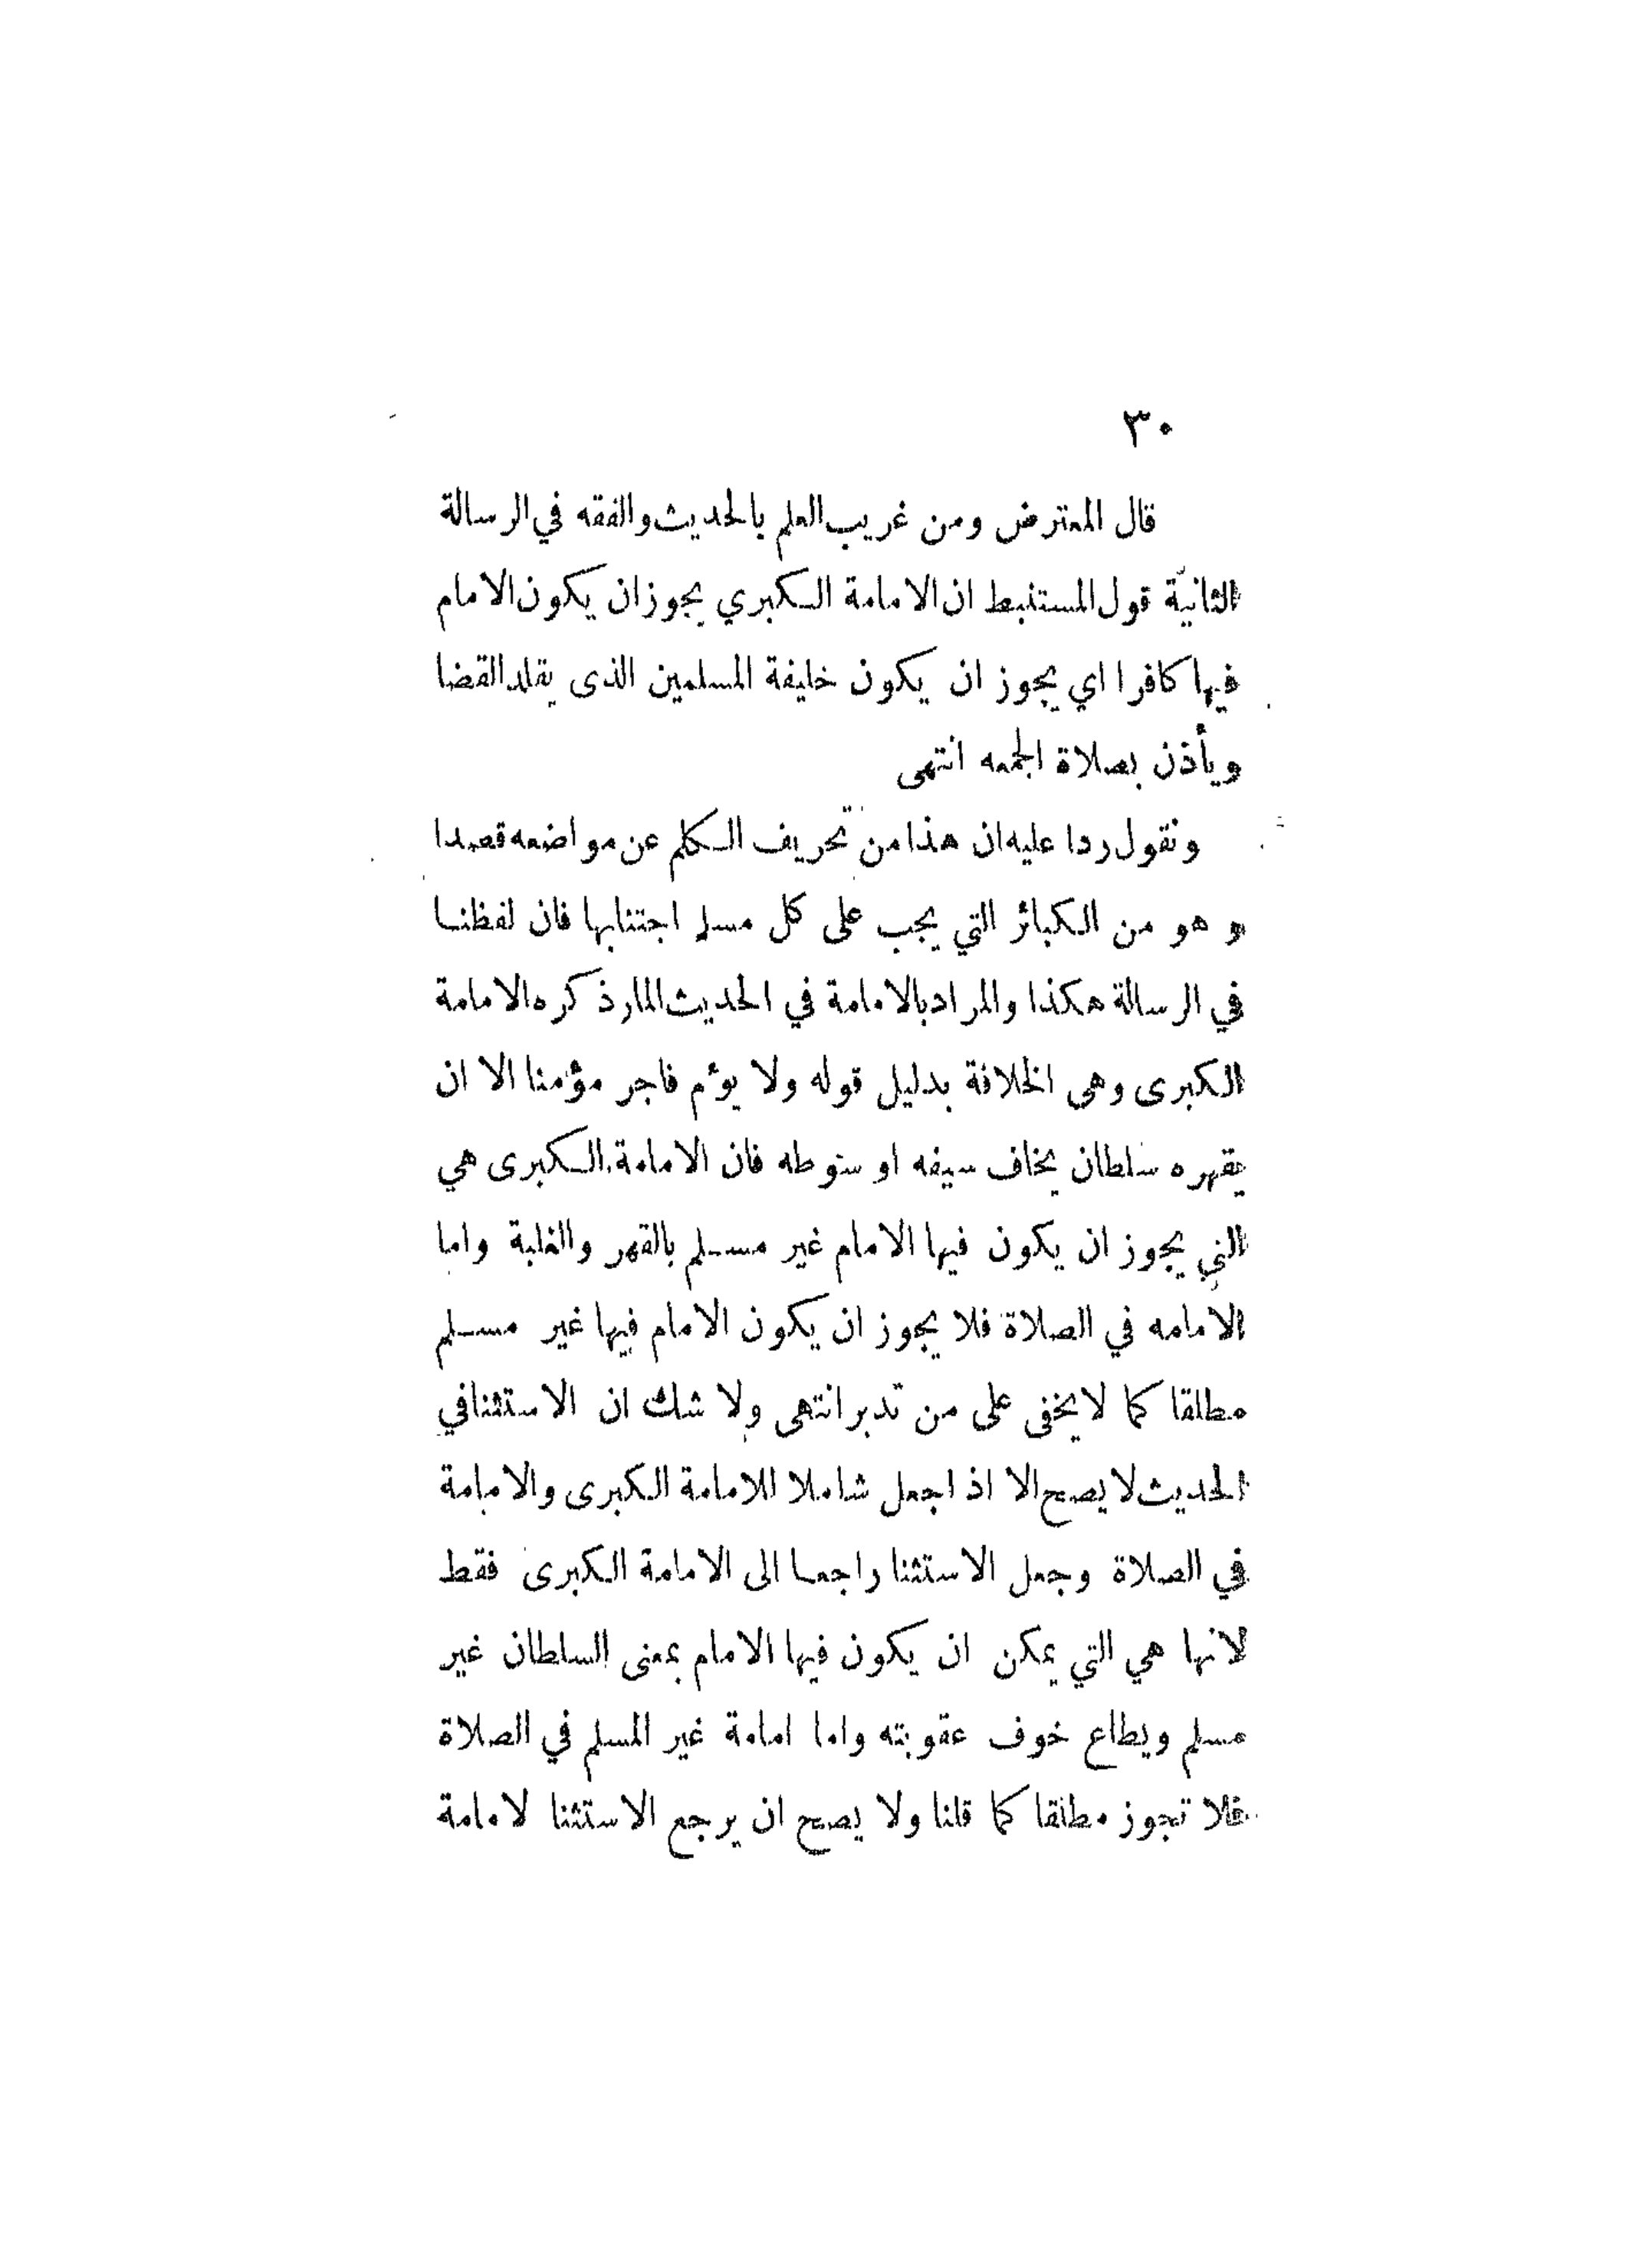 ٣٠
قال المعترض ومن غريب العلم بالحديث والفقه في الرسالة
الثانية قول المستنبط ان الامامة الكبري يجوز ان يكون الامام
فيها كافرا اي يجوز ان يكون خليفة المسلمين الذى يقلد القضا
ويأذن بصلاة الجمعه انتهى
ونقول ردا عليه ان هذا من تحريف الكلم عن مواضعه قصدا
و هو من الكبائر التي يجب على كل مسلم اجتنابها فان لفظنا
في الرسالة هكذا والمراد بالامامة في الحديث المار ذكره الامامة
الكبرى وهى الخلافة بدليل قوله ولا يؤم فاجر مؤمنا الا ان
يقهره سلطان يخاف سيفه او سوطه فان الامامة الكبرى هي
التي يجوز ان يكون فيها الامام غير مسلم بالقهر والغلبة واما
الامامه في الصلاة فلا يجوز ان يكون الامام فيها غير مسلم
مطلقا كما لا يخفى على من تدبر انتهى ولا شك ان الاستثنا في
الحديث لا يصح الا اذ اجعل شاملا للامامة الكبرى والامامة
في الصلاة وجعل الاستثنا راجعا الى الامامة الكبرى فقط
لانها هي التي يمكن ان يكون فيها الامام بمعنى السلطان غير
مسلم ويطاع خوف عقوبته واما امامة غير المسلم في الصلاة
فلا تجوز مطلقا كما قلنا ولا يصح ان يرجع الاستثنا لامامة